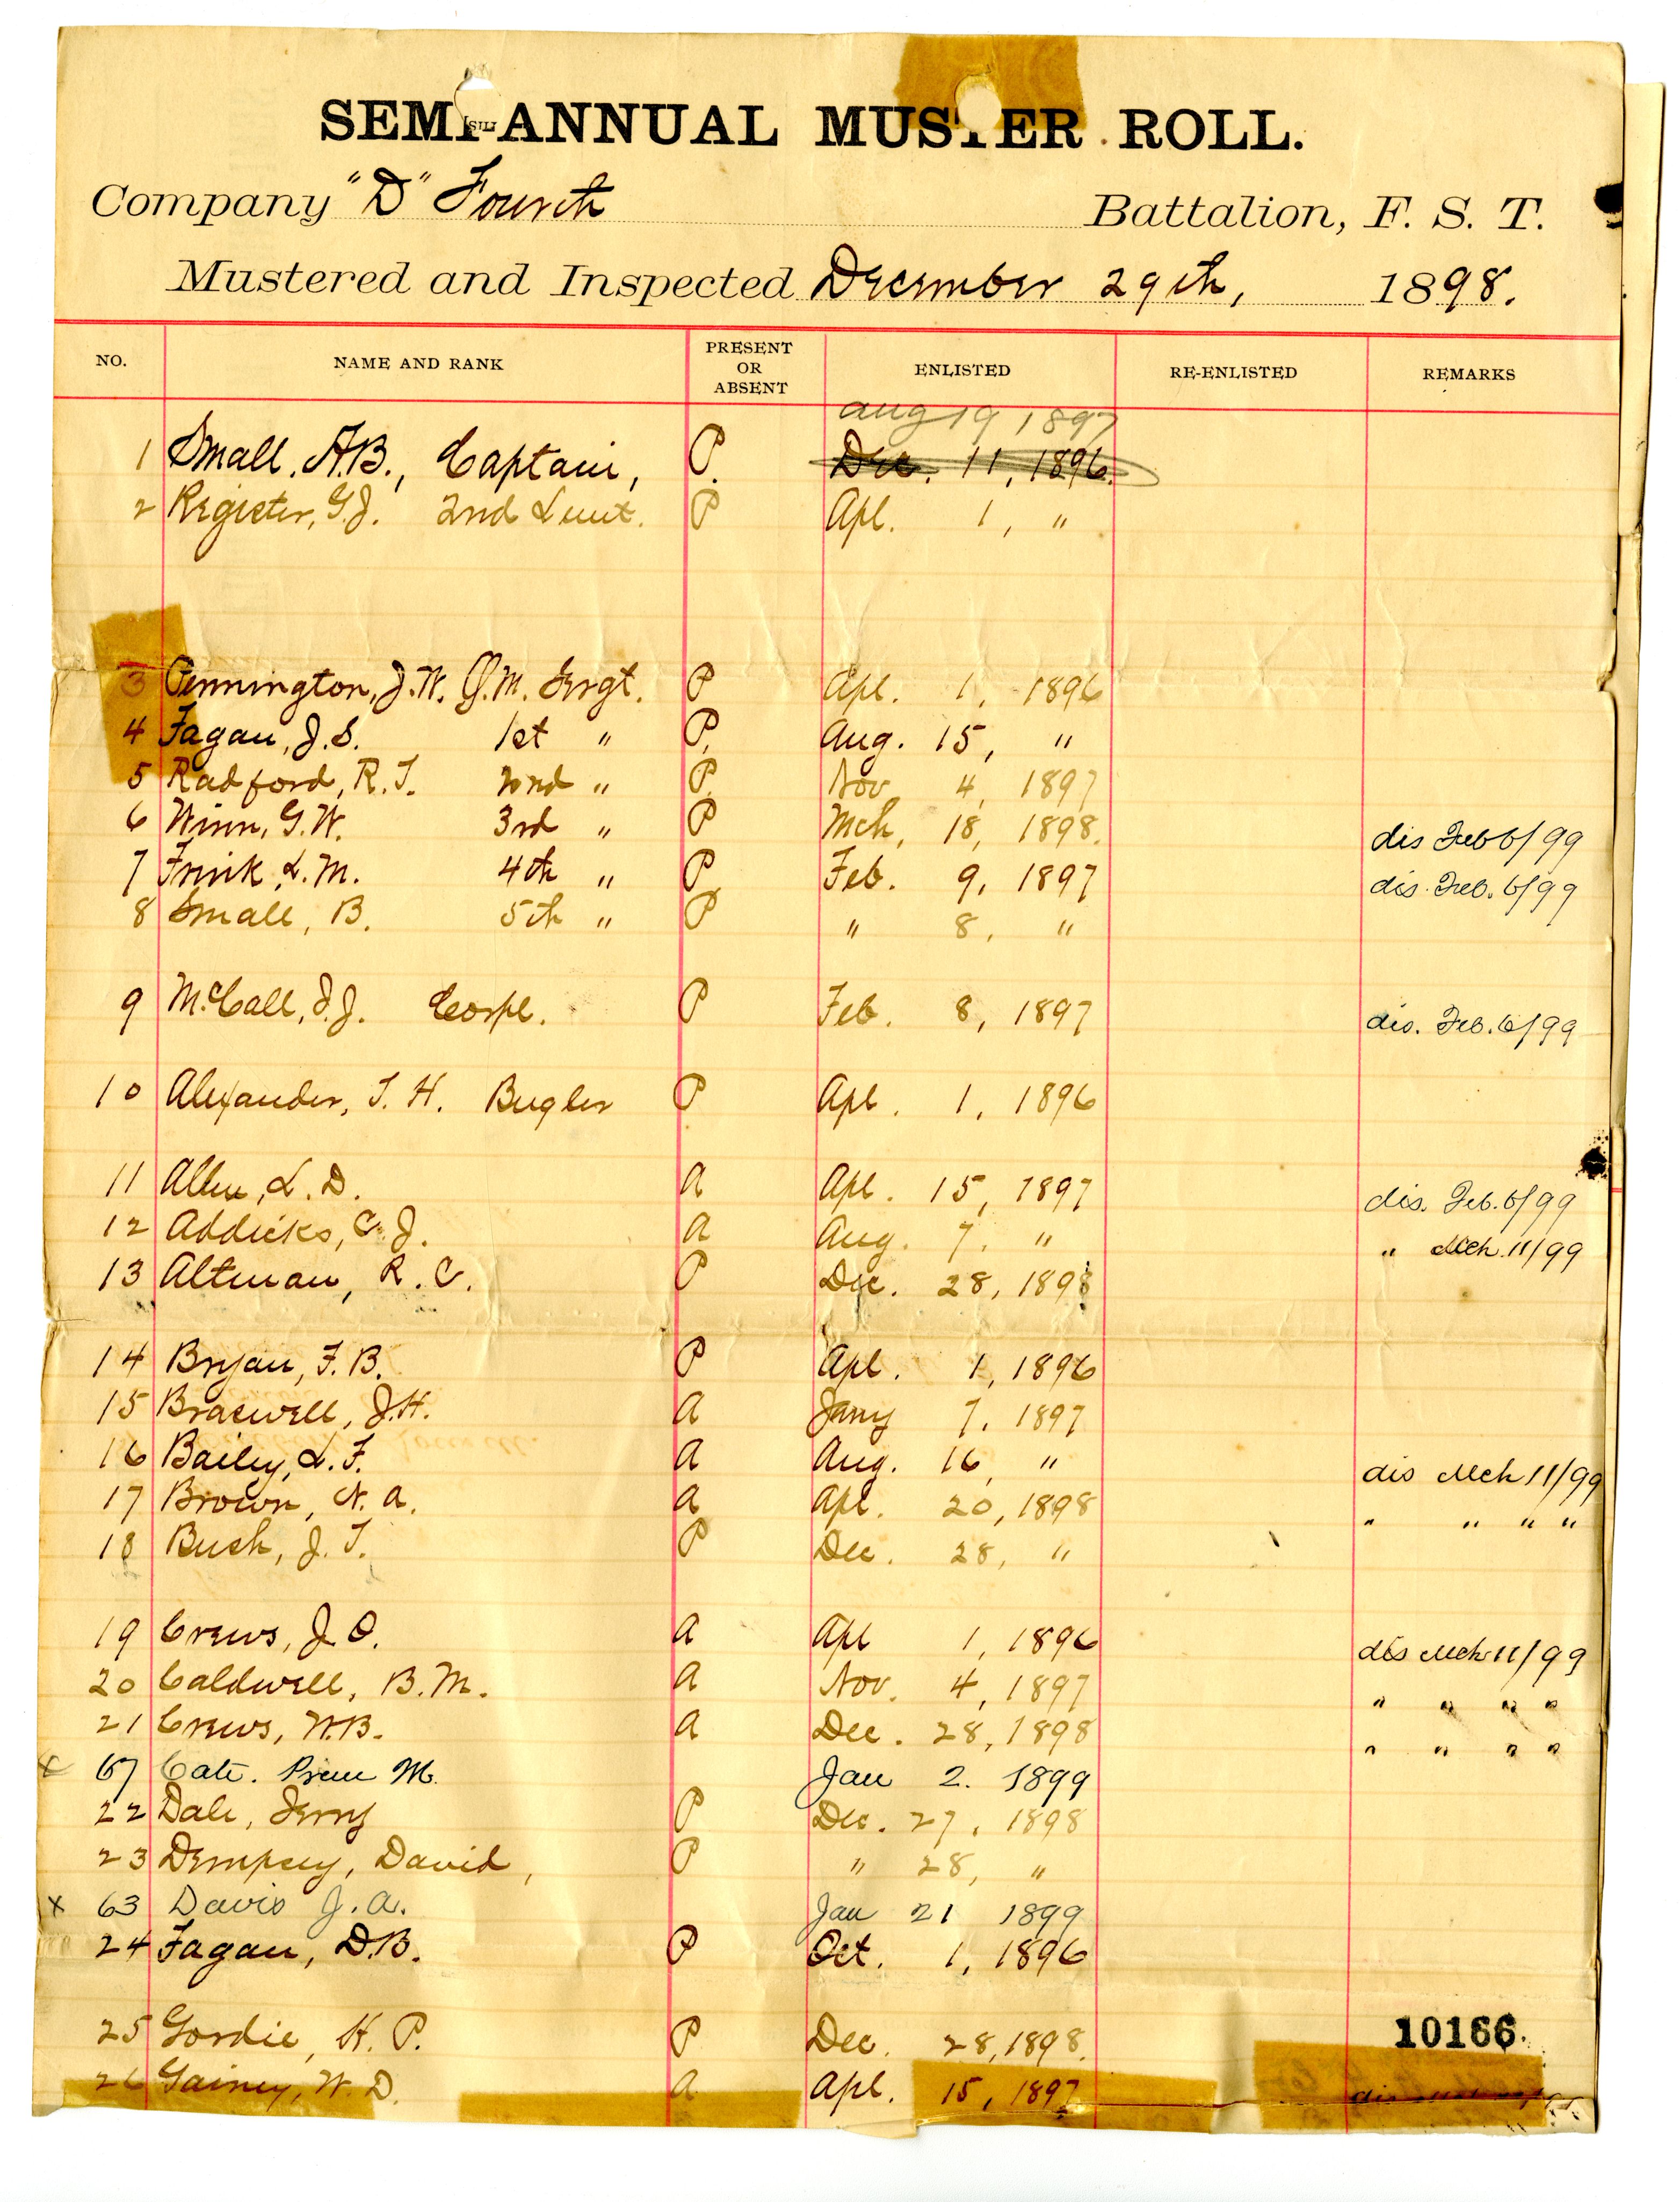 SEMI-ANNUAL MUSTER ROLL.
Company "D" Fourth Battalion, F. S. T.
Mustered and Inspected December 29th, 1898.
NO. NAME AND RANK PRESENT OR ABSENT ENLISTED RE-ENLISTED REMARKS
Aug 19 1897
1 Small, A.B., Captain, P. Dec. 11, 1896.
2 Register, G.J. 2nd Lieut. P Apl. 1, "
3 Pennington, J.W. Q.M. Sergt. P Apl. 1, 1896
4 Fagan, J.S. 1st " P, Aug. 15, "
5 Radford, R.T. 2nd " P, Nov 4, 1897
6 Winn, G.W. 3rd " P Mch, 18, 1898. dis Feb 6/99
7 Frink, L.M. 4th " P Feb. 9, 1897 dis. Feb. 6/99
8 Small, B. 5th " P " 8, "
9 McCall, J.J. Corpl. P Feb. 8, 1897 dis. Feb. 6/99
10 Alexander, T.H. Bugler P Apl. 1, 1896
11 Allen, L.D. A Apl. 15, 1897 dis. Feb. 6/99
12 Addicks, C.J. A Aug. 7, " " Mch. 11/99
13 Altman, R.C. P Dec. 28, 1898
14 Bryan, F.B. P Apl. 1, 1896
15 Braswell, J.H. A Jany 7, 1897
16 Bailey, L.F. A Aug. 16, " dis Mch 11/99
17 Brown, N.A. A Apl. 20, 1898 " " " "
18 Bush, J.T. P Dec. 28, "
19 Crews, J.O. A Apl 1, 1896 dis Mch 11/99
20 Caldwell, B.M. A Nov. 4, 1897 " " " "
21 Crews, W.B. A Dec. 28, 1898 " " " "
x 67 Cate. M. Jan 2. 1899
22 Dale, Jerry P Dec. 27, 1898
23 Dempsey, David, P " 28, "
x 63 Davis J.A. Jan 21 1899
24 Fagan, D.B. P Oct. 1, 1896
25 Gordie, H.P. P Dec. 28, 1898.
10166.
26 Gainey, W.D. A Apl. 15, 1897